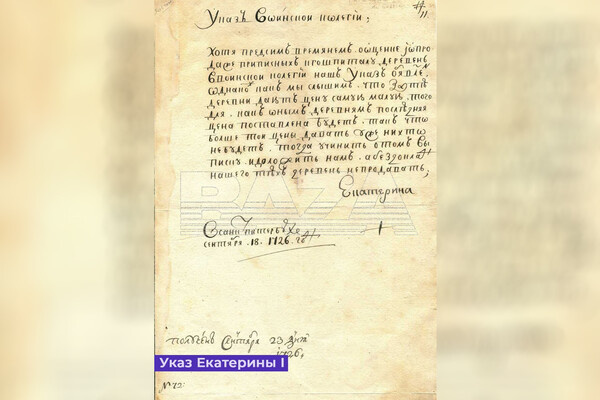 Указъ Воинской колегіи;
11
Хотя предсимъ времянемъ
продаже приписныхъ кгошпиталу деревень
Воинской колегіи нашъ Указъ
Однако какъ мы слышимъ, что за тѣ
деревни даютъ цену самую малую, того
для, какъ онымъ деревнямъ последняя
цена поставлена будетъ, такъ что
болше той цены давать уже никто
небудетъ, тогда учинить о томъ вы
писку и доложить намъ, а без доклада
нашего тѣхъ деревень непродавать,
Екатерина
BAZA
Всанктъ питербурхе
сентября. 18. 1726. го
получен Сентября 23 дня
1726,
Указ Екатерины I